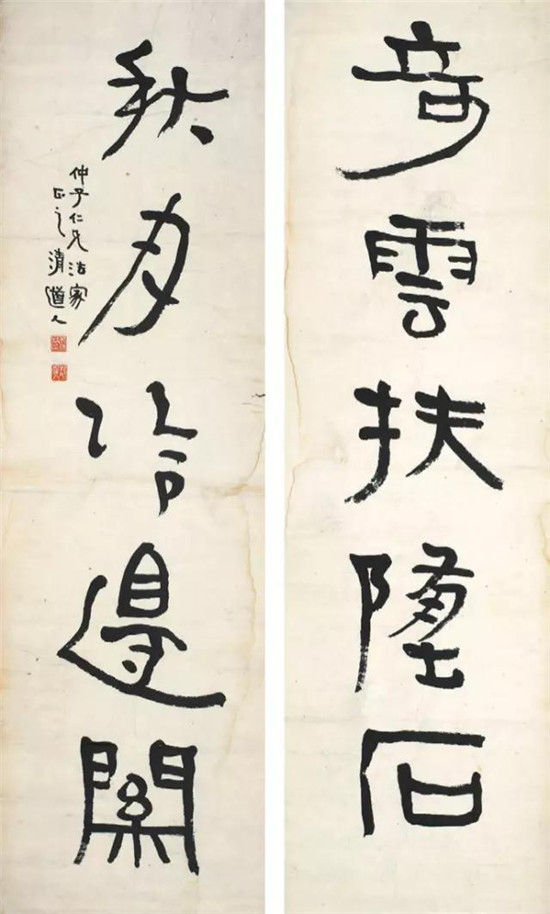 奇雲扶墜石
秋月冷邊關
仲子仁兄法家
正之 清道人